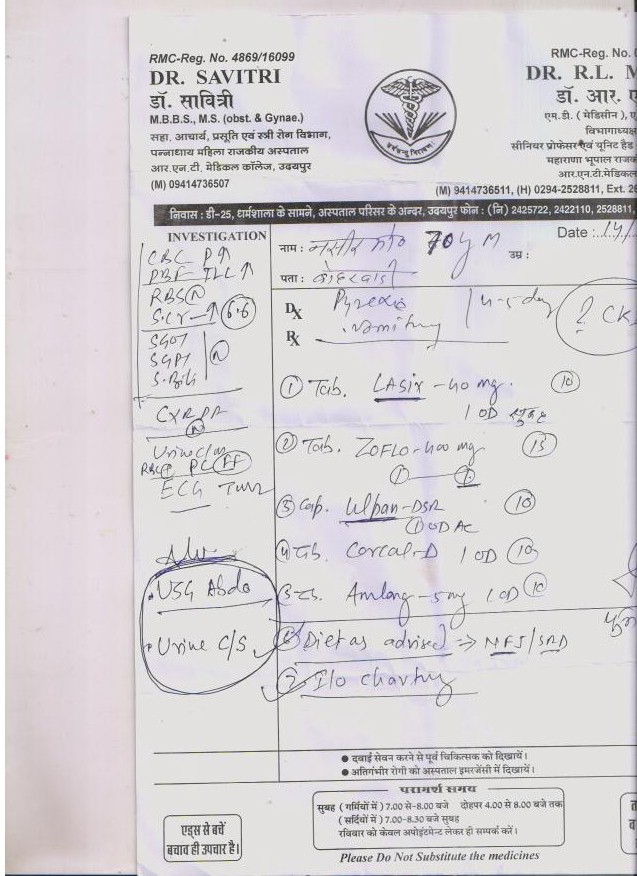 RMC-Reg. No. 4869/16099
DR. SAVITRI
डॉ. सावित्री
M.B.B.S., M.S. (obst. & Gynae.)
सहा. आचार्य, प्रसूति एवं स्त्री रोग विभाग,
पन्नाधाय महिला राजकीय अस्पताल
आर.एन.टी. मेडिकल कॉलेज, उदयपुर
(M) 09414736507
RMC-Reg. No.
DR. R.L.
डॉ. आर.
एम.डी. ( मेडिसीन ),
विभागाध्यक्ष
सीनियर प्रोफेसर एवं यूनिट हेड
महाराणा भूपाल राज
आर.एन.टी.मेडिकल
(M) 9414736511, (H) 0294-2528811, Ext. 2
निवास : डी-25, धर्मशाला के सामने, अस्पताल परिसर के अन्दर, उदयपुर फोन : (नि) 2425722, 2422110, 2528811,
INVESTIGATION
CBC P↑
PBF TLC↑
RBS (N)
S.Cr-↑ (6.6)
SGOT
SGPT (N)
S.Bil
CXR PA
(N)
Urine
RBC PC
ECG
USG Abdo
Urine C/S
नाम : 70 y M उम्र :
Date :
पता :
Dx Pyrexia 4-5 day ? CK
Rx vomiting
① Tab. LASIX - 40 mg. (10)
1 OD सुबह
② Tab. ZOFLO-400 mg (15)
③ Cap. -DSR (10)
① OD AC
④ Tab. Corcal-D 1 OD (10)
Amlong-5 mg 1 OD (10)
⑥ Diet as advised ⇒ /SRD
⑦ I/O charting
● दवाई सेवन करने से पूर्व चिकित्सक को दिखायें।
● अतिगंभीर रोगी को अस्पताल इमरजेंसी में दिखायें।
परामर्श समय
सुबह ( गर्मियों में ) 7.00 से-8.00 बजे दोहपर 4.00 से 8.00 बजे तक
( सर्दियों में ) 7.00-8.30 बजे सुबह
रविवार को केवल अपोइंटमेन्ट लेकर ही सम्पर्क करें।
एड्स से बचें
बचाव ही उपचार है।
Please Do Not Substitute the medicines